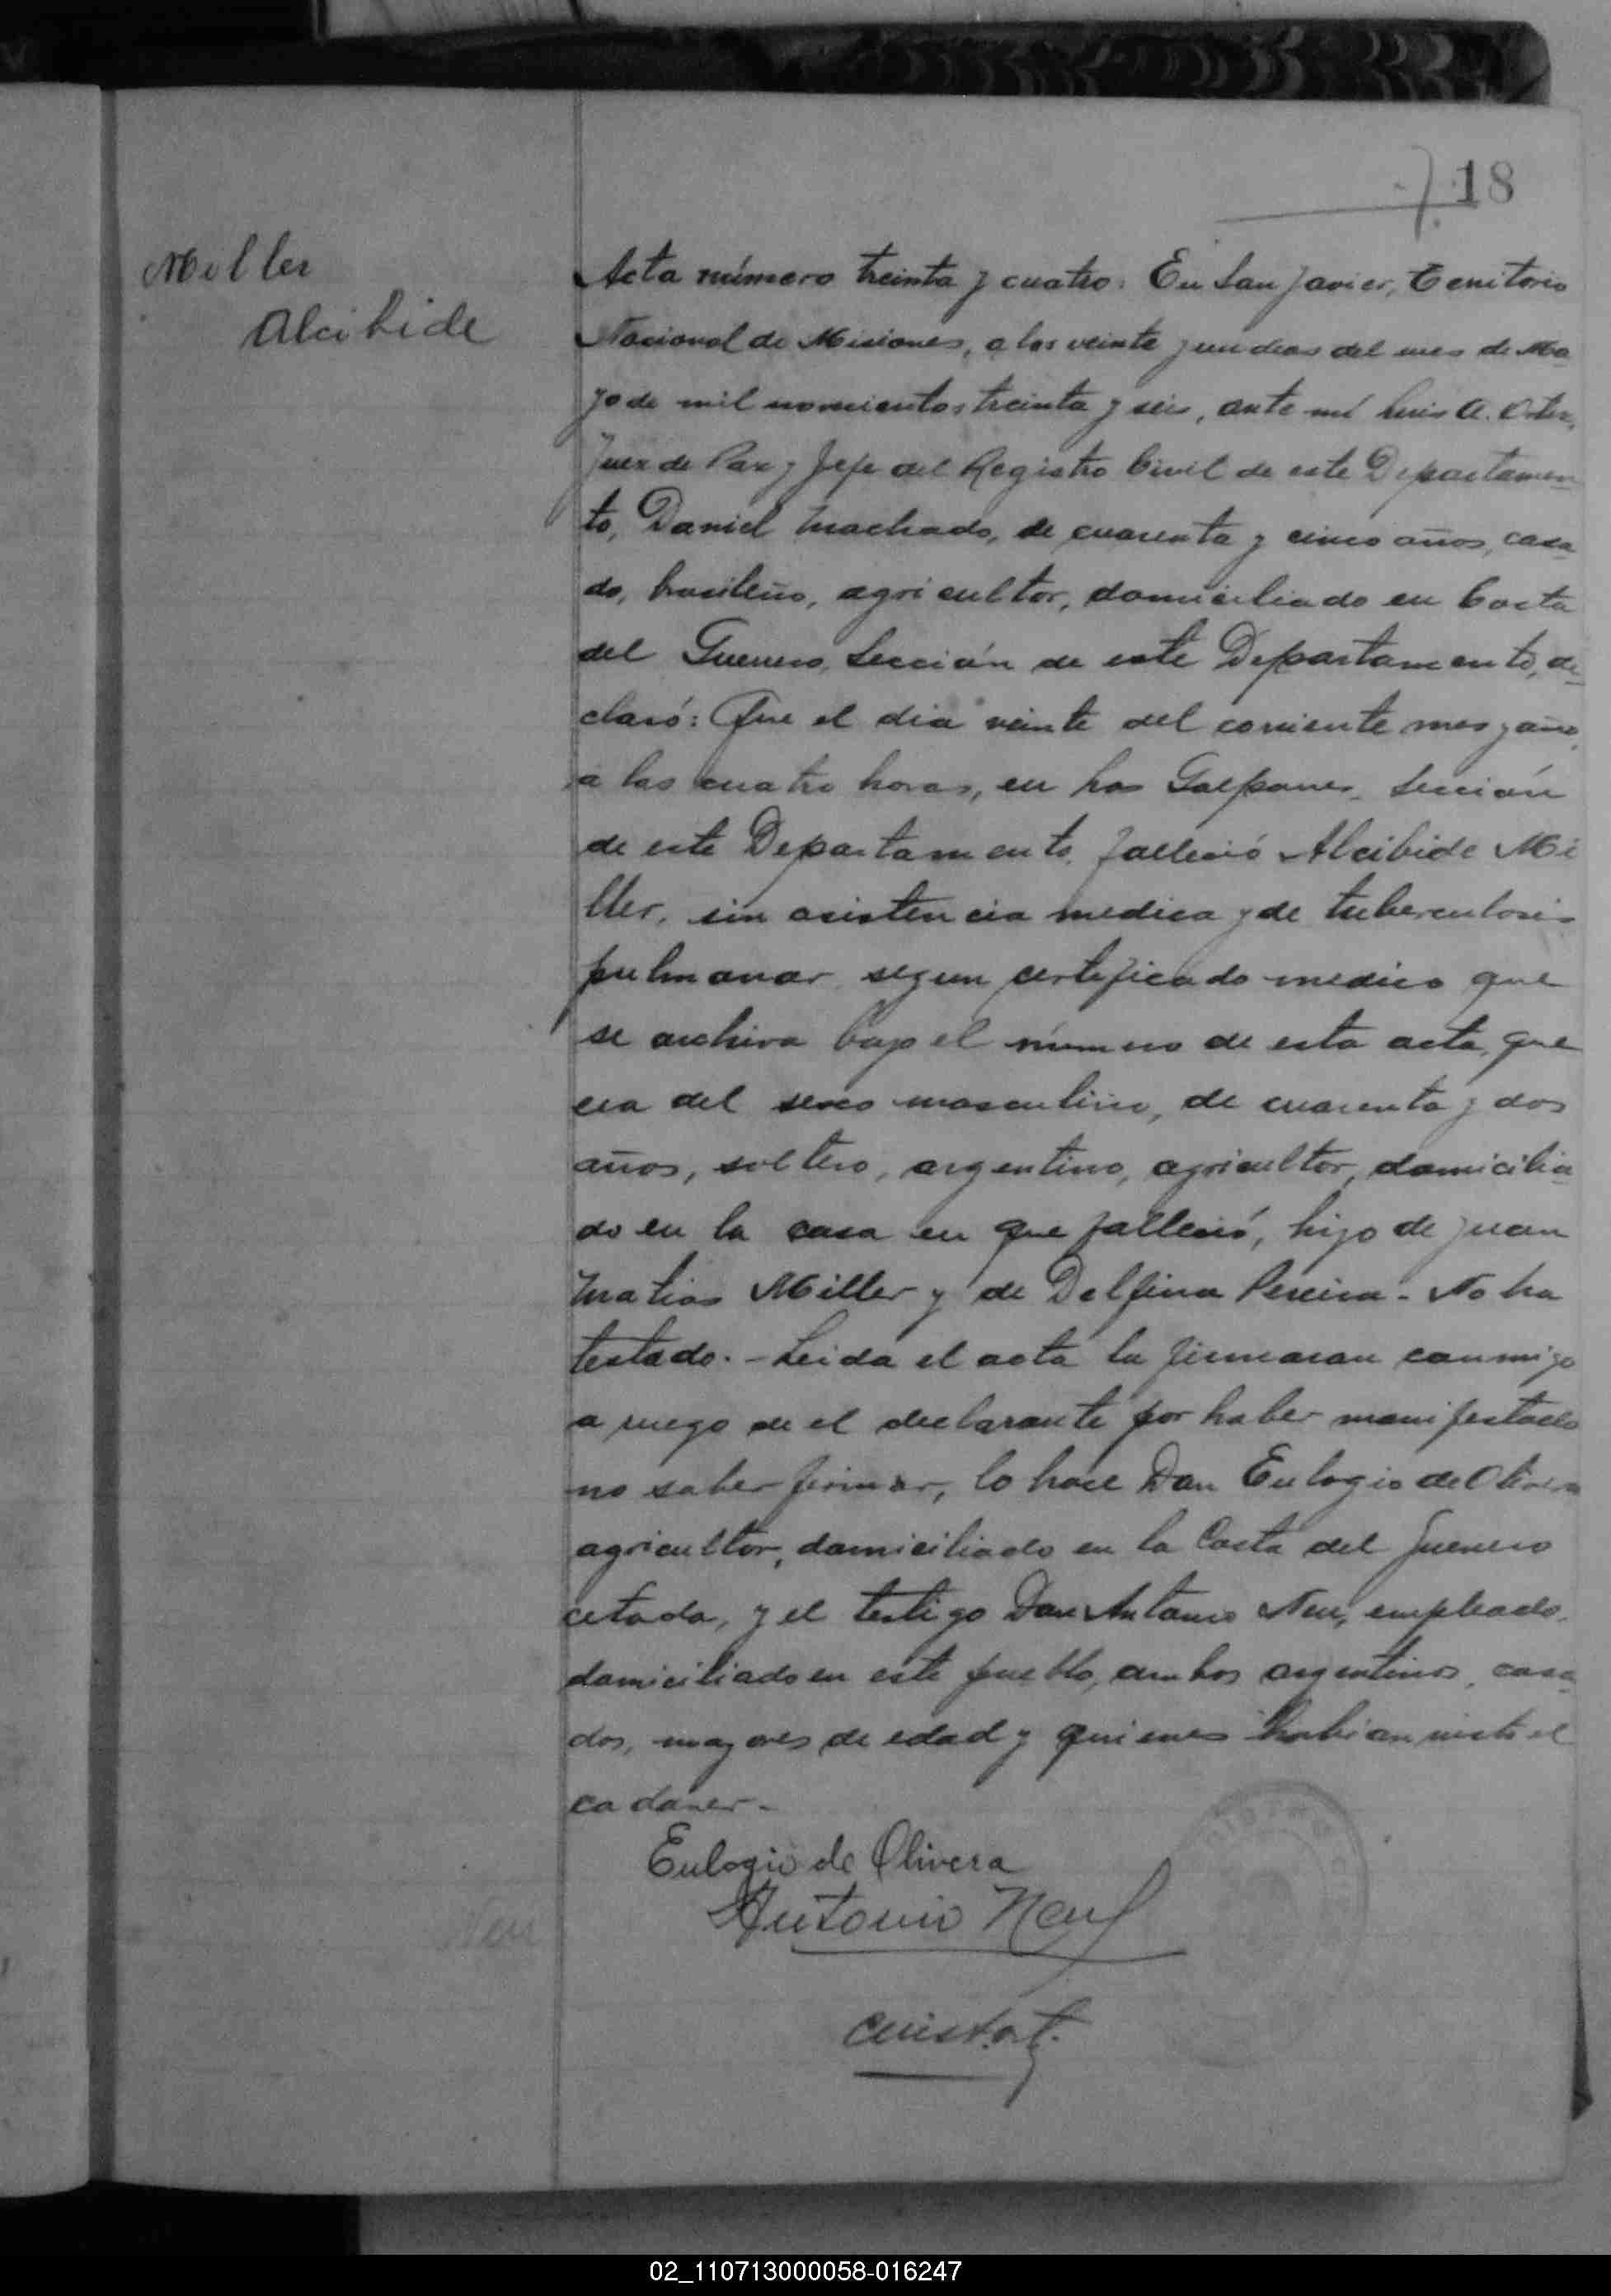 18
Miller
Alcibide
Acta número treinta y cuatro: En San Javier, Territorio
Nacional de Misiones, a los veinte y un dias del mes de Ma
yo de mil novecientos treinta y seis, ante mí Luis A.
Juez de Paz y Jefe del Registro Civil de este Departamen
to, Daniel Machado, de cuarenta y cinco años, casa
do, brasileño, agricultor, domiciliado en Costa
del Guerrero, Sección de este Departamento, de
claró: Que el dia veinte del corriente mes y año,
a las cuatro horas, en Los Galpones, Sección
de este Departamento, falleció Alcibide Mi
ller, sin asistencia medica y de tuberculosis
pulmonar segun certificado medico que
se archiva bajo el número de esta acta, que
era del sexo masculino, de cuarenta y dos
años, soltero, argentino, agricultor, domicilia
do en la casa en que falleció, hijo de Juan
Matias Miller y de Delfina Pereira - No ha
testado. - Leida el acta la firmaran conmigo
a ruego de el declarante por haber manifestado
no saber firmar, lo hace Don Eulogio de Olivera
agricultor, domiciliado en la Costa del Guerrero
citada, y el testigo Don Antonio Neu, empleado,
domiciliado en este pueblo, ambos argentinos, casa
dos, mayores de edad y quienes habian visto el
cadaver -
Eulogio de Olivera
Antonio Neu
Neu
02_110713000058-016247